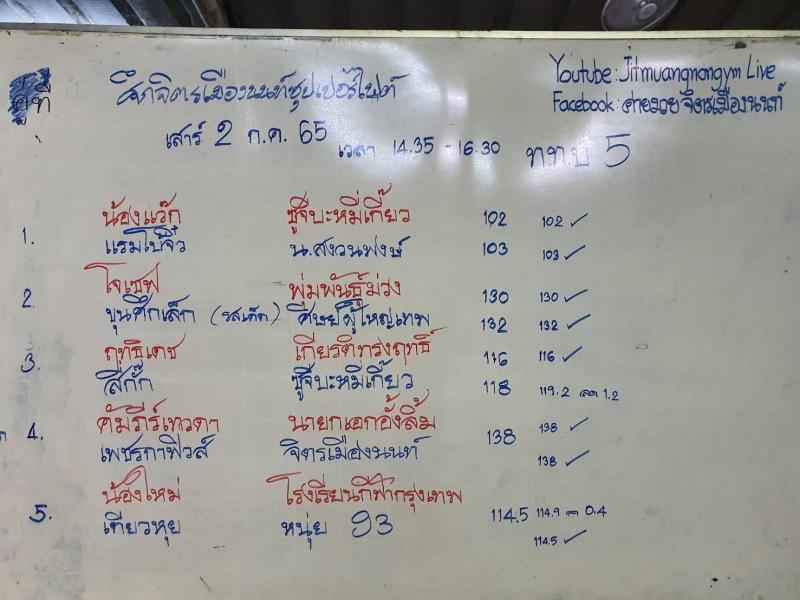 คู่ที่
ศึกจิตรเมืองนนท์ซุปเปอร์ไฟต์
Youtube: Jitmuangnongym Live
Facebook: ค่ายมวยจิตรเมืองนนท์
เสาร์ 2 ก.ค. 65 เวลา 14.35 - 16.30 ททบ 5
1. น้องแว๊ก ซูจีบะหมี่เกี๊ยว 102 102 ✓
แรมโบ้จิ๋ว น.สงวนพงษ์ 103 103 ✓
2. โจเซฟ พุ่มพันธุ์ม่วง 130 130 ✓
ขุนศึกเล็ก (รสเด็ด) ศิษย์ผู้ใหญ่เทพ 132 132 ✓
3. ฤทธิเดช เกียรติทรงฤทธิ์ 116 116 ✓
สีกั๊ก ซูจีบะหมี่เกี๊ยว 118 119.2 ลด 1.2
4. คัมภีร์เทวดา นายกเอกอั้งลิ้ม 138 138 ✓
เพชรกาฟิวส์ จิตรเมืองนนท์ 138 ✓
5. น้องใหม่ โรงเรียนกีฬากรุงเทพ 114.5 114.9 ลด 0.4
เทียวหุย หนุ่ย 93 114.5 ✓